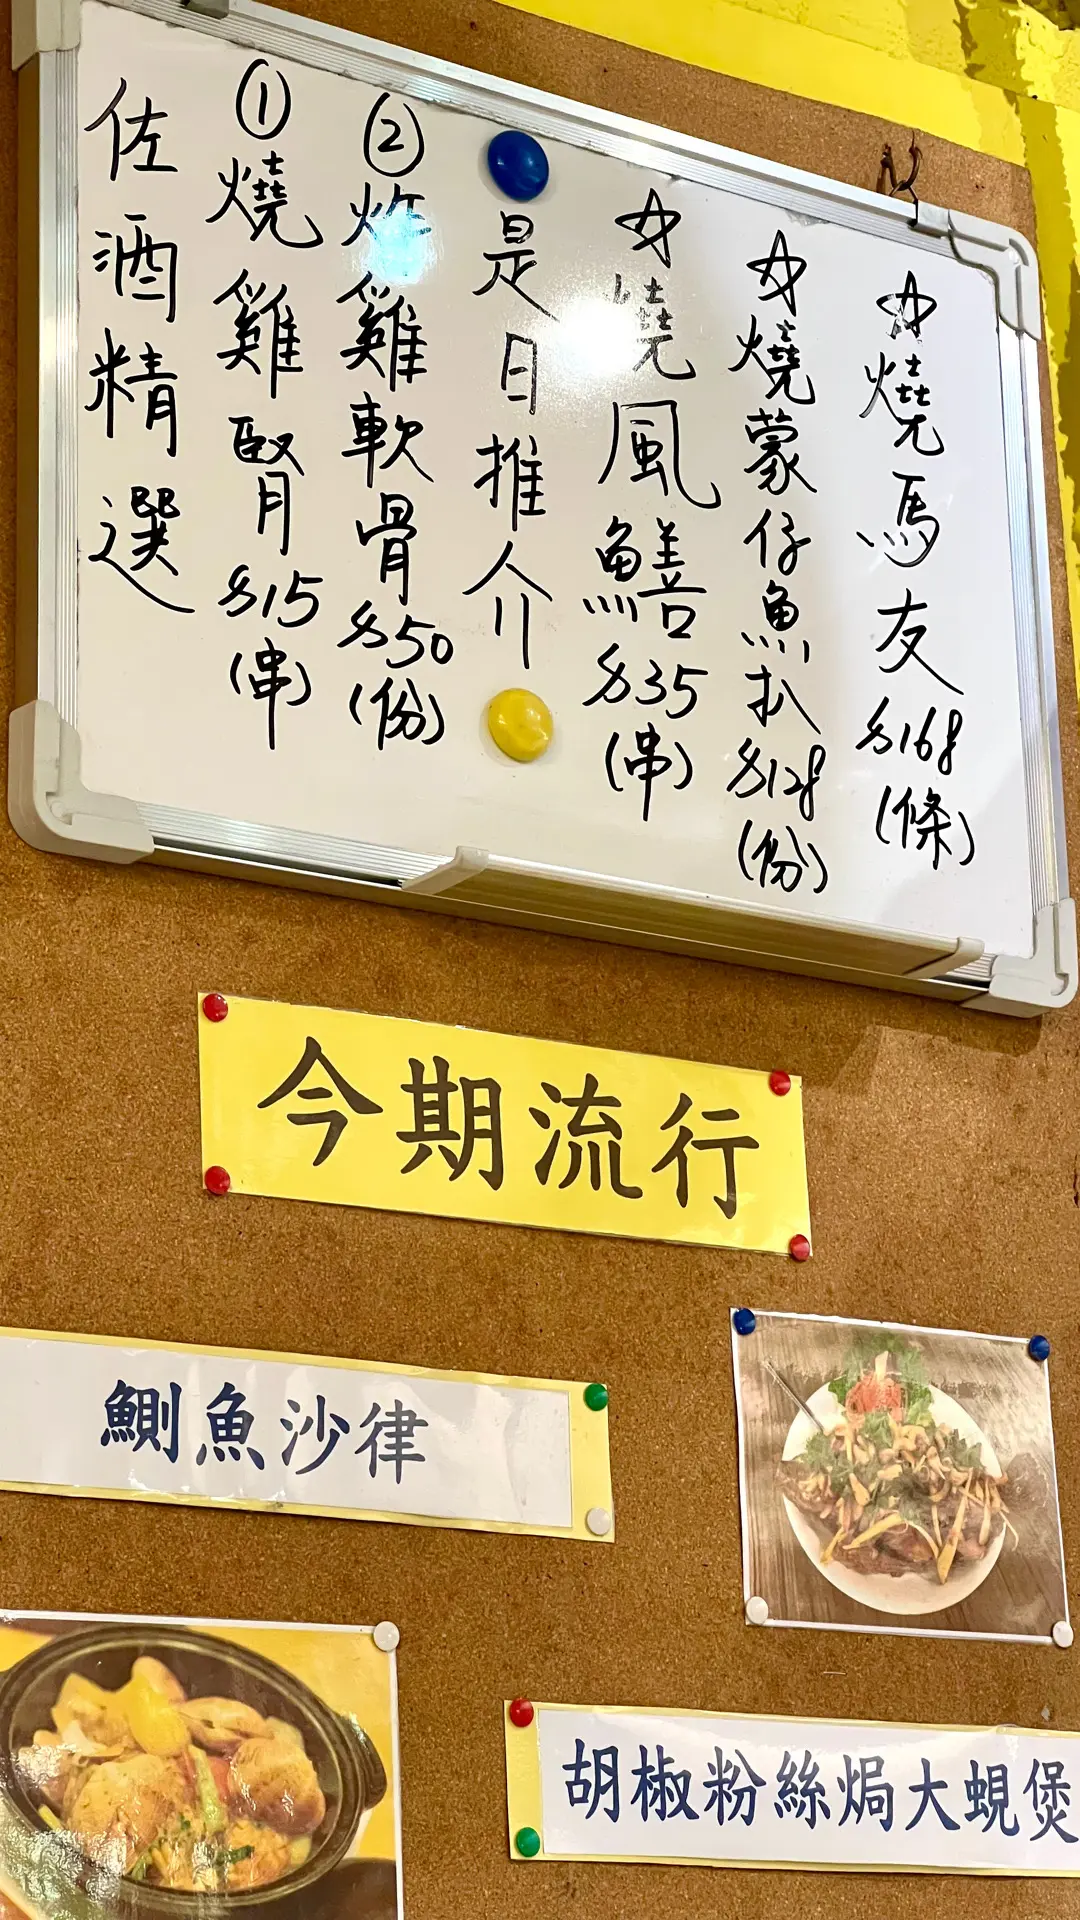 ☆燒馬友$168(條)
☆燒蒙仔魚扒$128(份)
☆燒風鱔$35(串)
是日推介
②炸雞軟骨$50(份)
①燒雞腎$15(串)
佐酒精選
今期流行
鰂魚沙律
胡椒粉絲焗大蜆煲